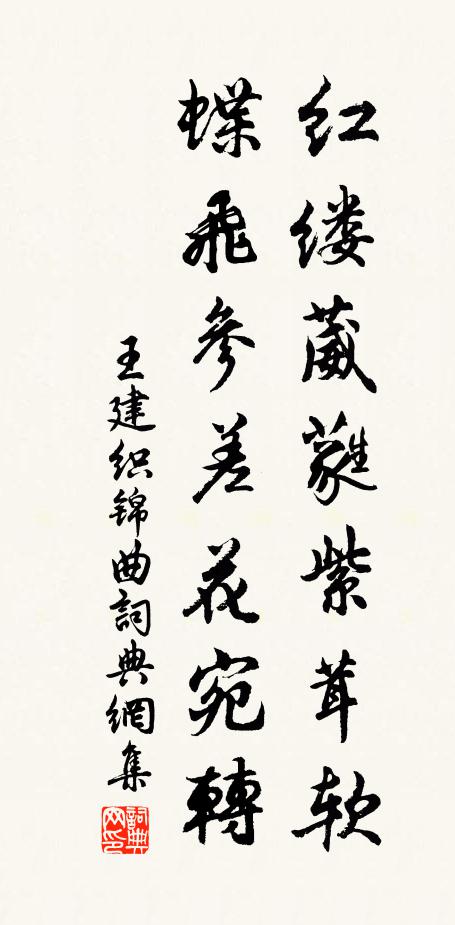 红缕葳蕤紫茸软
蝶飞参差花宛轉
王建织锦曲詞典網集
詞典网印